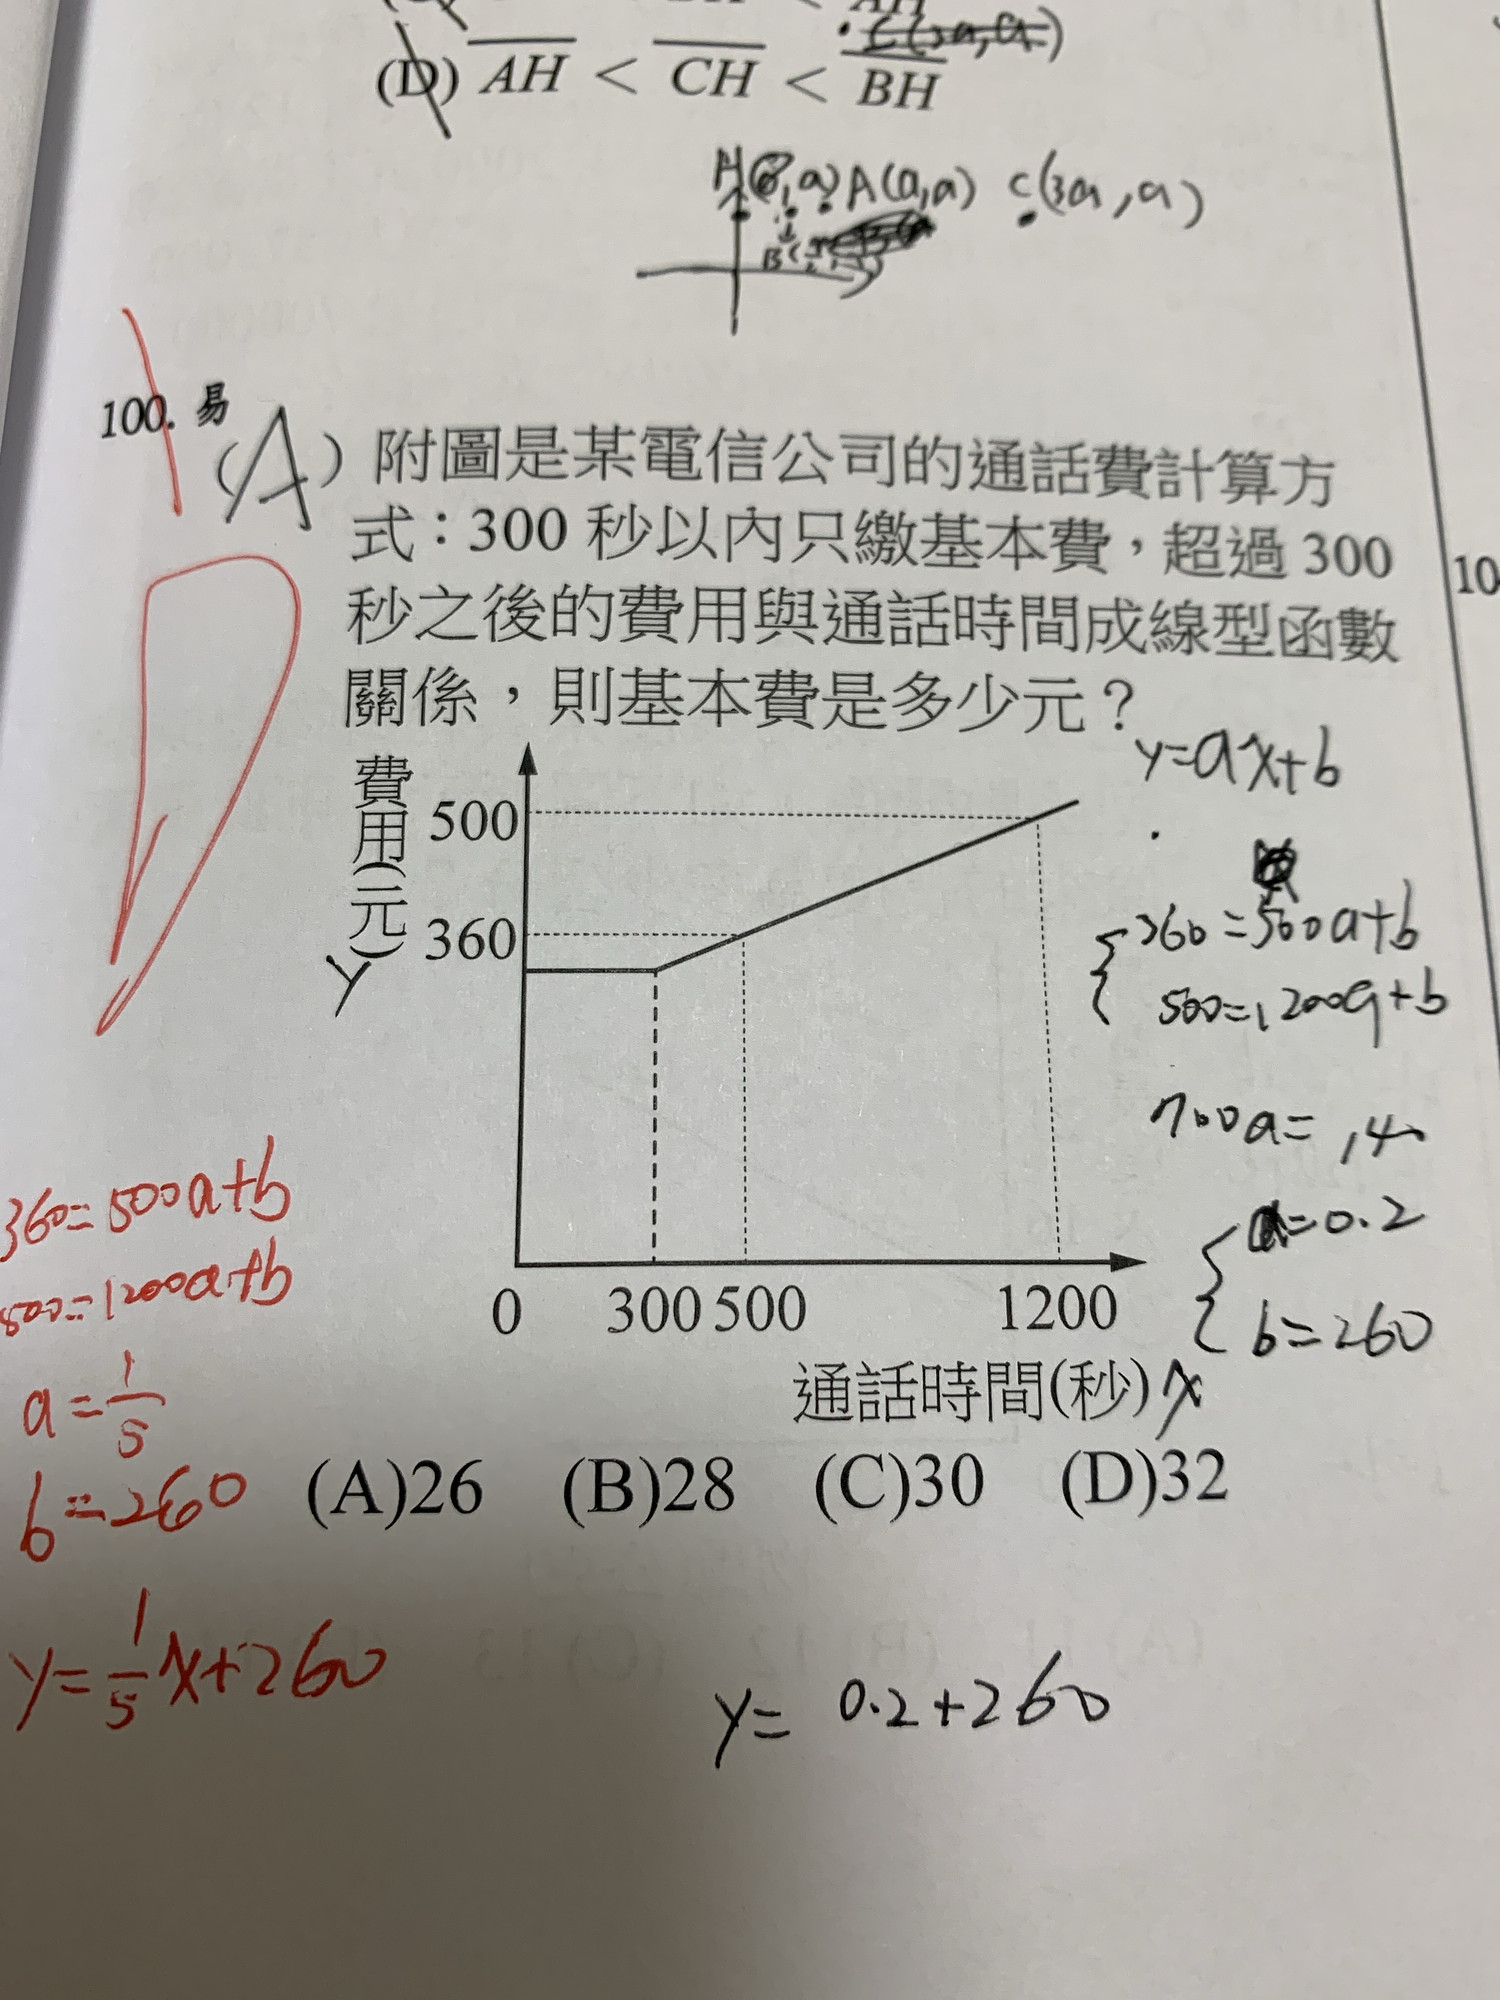 (D) AH < CH < BH
A(a,a) C(3a,a)
100. 易
(A) 附圖是某電信公司的通話費計算方
式：300 秒以內只繳基本費，超過 300
秒之後的費用與通話時間成線型函數
關係，則基本費是多少元？
y=ax+b
費用(元)
y
500
360
360=500a+b
500=1200a+b
700a=140
a=0.2
b=260
0 300 500 1200
通話時間(秒) x
360=500a+b
500=1200a+b
a=1/5
b=260
(A)26 (B)28 (C)30 (D)32
y=1/5x+260
y=0.2+260
10